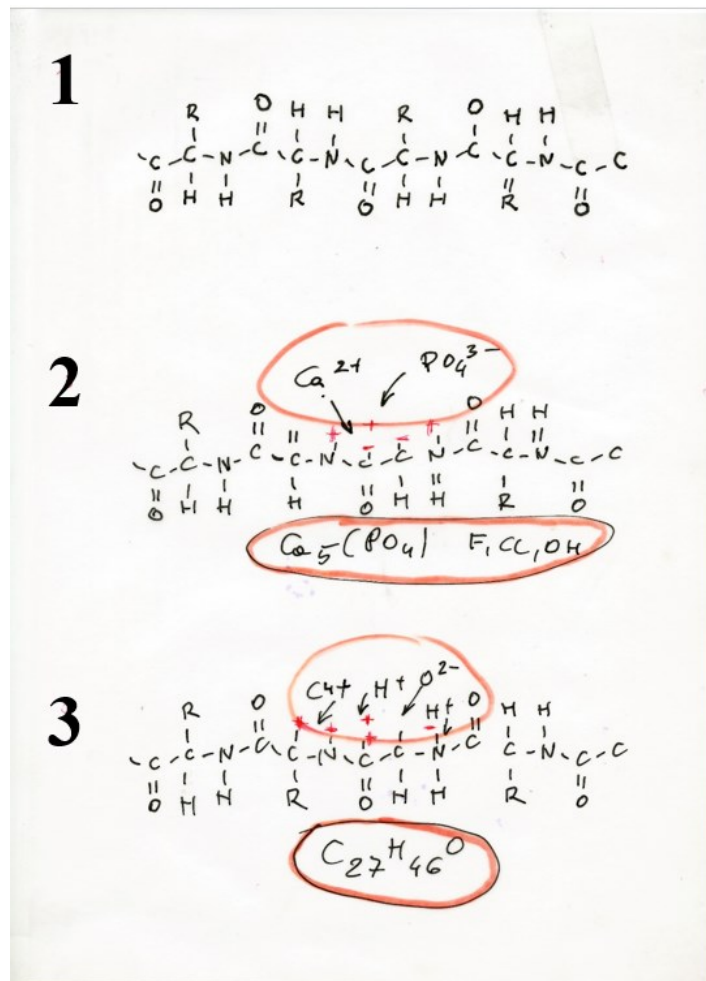 1
O H H R O H H
R
C - C - N - C C - N C - C - N - C C - N - C - C
O H H R O H H R O
2
Ca 2+ PO4 3-
R O O H H
C - C - N - C C - N C C N C C - N - C - C
O H H H O H H R O
Ca5-(PO4) F, Cl, OH
3
C4+ H+ O2- H+
R O O H H
C - C - N - C C - N - C - C - N - C C - N - C - C
O H H R O H H R O
C27H46O